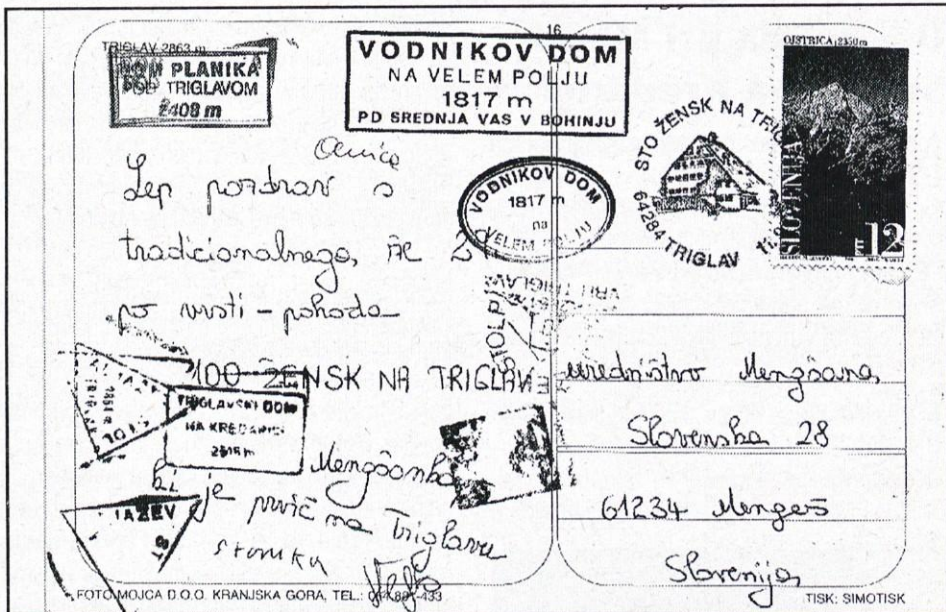 TRIGLAV 2863 m
DOM PLANIKA
POD TRIGLAVOM
2408 m
16
VODNIKOV DOM
NA VELEM POLJU
1817 m
PD SREDNJA VAS V BOHINJU
OJSTRICA, 2350m
SLOVENIJA
12
STO ŽENSK NA TRIG
64284 TRIGLAV
VODNIKOV DOM
1817 m
na
VELEM POLJU
Lep pozdrav s
tradicionalnega, že
po vrsti - pohoda
100 ŽENSK NA TRIGLAV
VRH TRIGLAV
STOLP
TRIGLAVSKI DOM
NA KREDARICI
2515 m
Mengšanka
ki je prvič na Triglavu
uredništvo Mengšana
Slovenska 28
61234 Mengeš
Slovenija
FOTO MOJCA D.O.O. KRANJSKA GORA, TEL.:
TISK: SIMOTISK